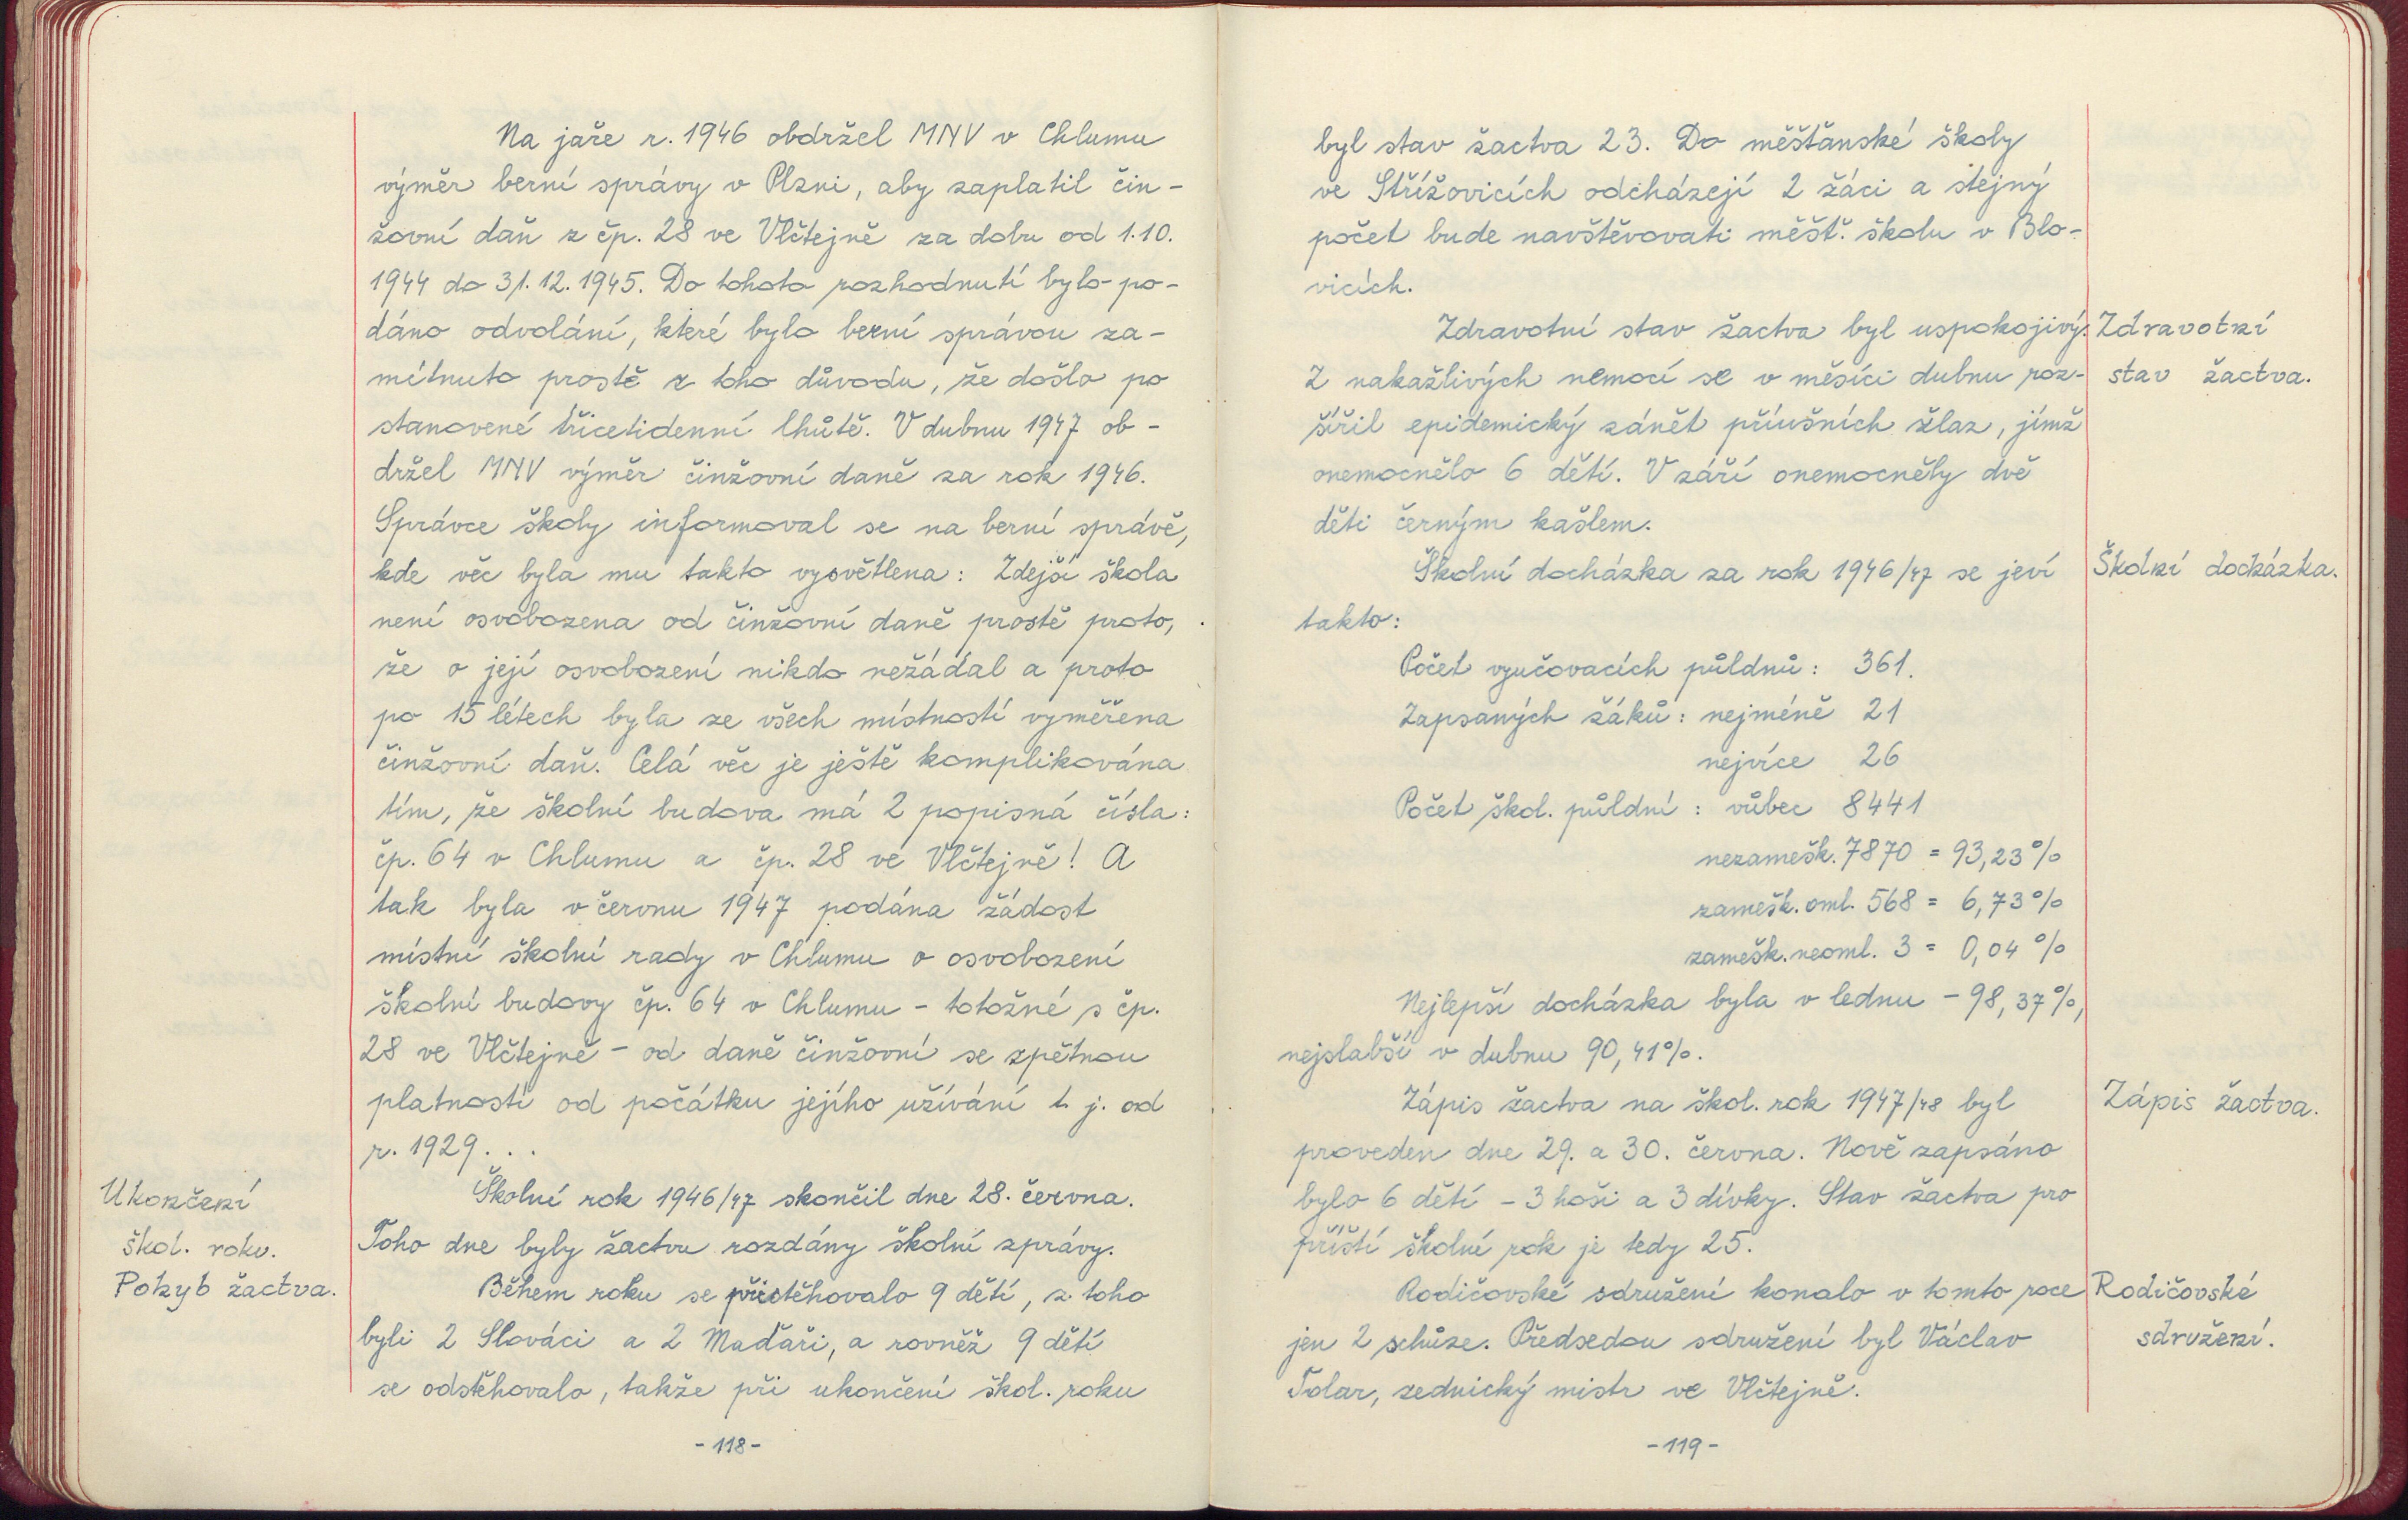 Na jaře r. 1946 obdržel MNV v Chlumu
výměr berní správy v Plzni, aby zaplatil čin-
žovní daň z čp. 28 ve Vlčtejně za dobu od 1.10.
1944 do 31.12.1945. Do tohoto rozhodnutí bylo po-
dáno odvolání, které bylo berní správou za-
mítnuto prostě z toho důvodu, že došlo po
stanovené třicetidenní lhůtě. V dubnu 1947 ob-
držel MNV výměr činžovní daně za rok 1946.
Správce školy informoval se na berní správě,
kde věc byla mu takto vysvětlena: Zdejší škola
není osvobozena od činžovní daně prostě proto,
že o její osvobození nikdo nežádal a proto
po 15 létech byla ze všech místností vyměřena
činžovní daň. Celá věc je ještě komplikována
tím, že školní budova má 2 popisná čísla:
čp. 64 v Chlumu a čp. 28 ve Vlčtejně! A
tak byla v červnu 1947 podána žádost
místní školní rady v Chlumu o osvobození
školní budovy čp. 64 v Chlumu - totožné s čp.
28 ve Vlčtejně - od daně činžovní se zpětnou
platností od počátku jejího užívání t. j. od
r. 1929...
Ukončení
škol. roku.
Školní rok 1946/47 skončil dne 28. června.
Toho dne byly žactvu rozdány školní zprávy.
Pohyb žactva.
Během roku se přistěhovalo 9 dětí, z toho
byli 2 Slováci a 2 Maďaři, a rovněž 9 dětí
se odstěhovalo, takže při ukončení škol. roku
- 118 -
byl stav žactva 23. Do měšťanské školy
ve Střížovicích odcházejí 2 žáci a stejný
počet bude navštěvovati měšť. školu v Blo-
vicích.
Zdravotní stav žactva byl uspokojivý.
Zdravotní
stav žactva.
Z nakažlivých nemocí se v měsíci dubnu roz-
šířil epidemický zánět příušních žlaz, jímž
onemocnělo 6 dětí. V září onemocněly dvě
děti černým kašlem.
Školní docházka za rok 1946/47 se jeví
Školní docházka.
takto:
Počet vyučovacích půldnů: 361.
Zapsaných žáků: nejméně 21
nejvíce 26
Počet škol. půldní: vůbec 8441
nezamešk. 7870 = 93,23%
zamešk. oml. 568 = 6,73%
zamešk. neoml. 3 = 0,04 %
Nejlepší docházka byla v lednu - 98,37%,
nejslabší v dubnu 90,41%.
Zápis žactva na škol. rok 1947/48 byl
Zápis žactva.
proveden dne 29. a 30. června. Nově zapsáno
bylo 6 dětí - 3 hoši a 3 dívky. Stav žactva pro
příští školní rok je tedy 25.
Rodičovské sdružení konalo v tomto roce
Rodičovské
sdružení.
jen 2 schůze. Předsedou sdružení byl Václav
Tolar, zednický mistr ve Vlčtejně.
- 119 -